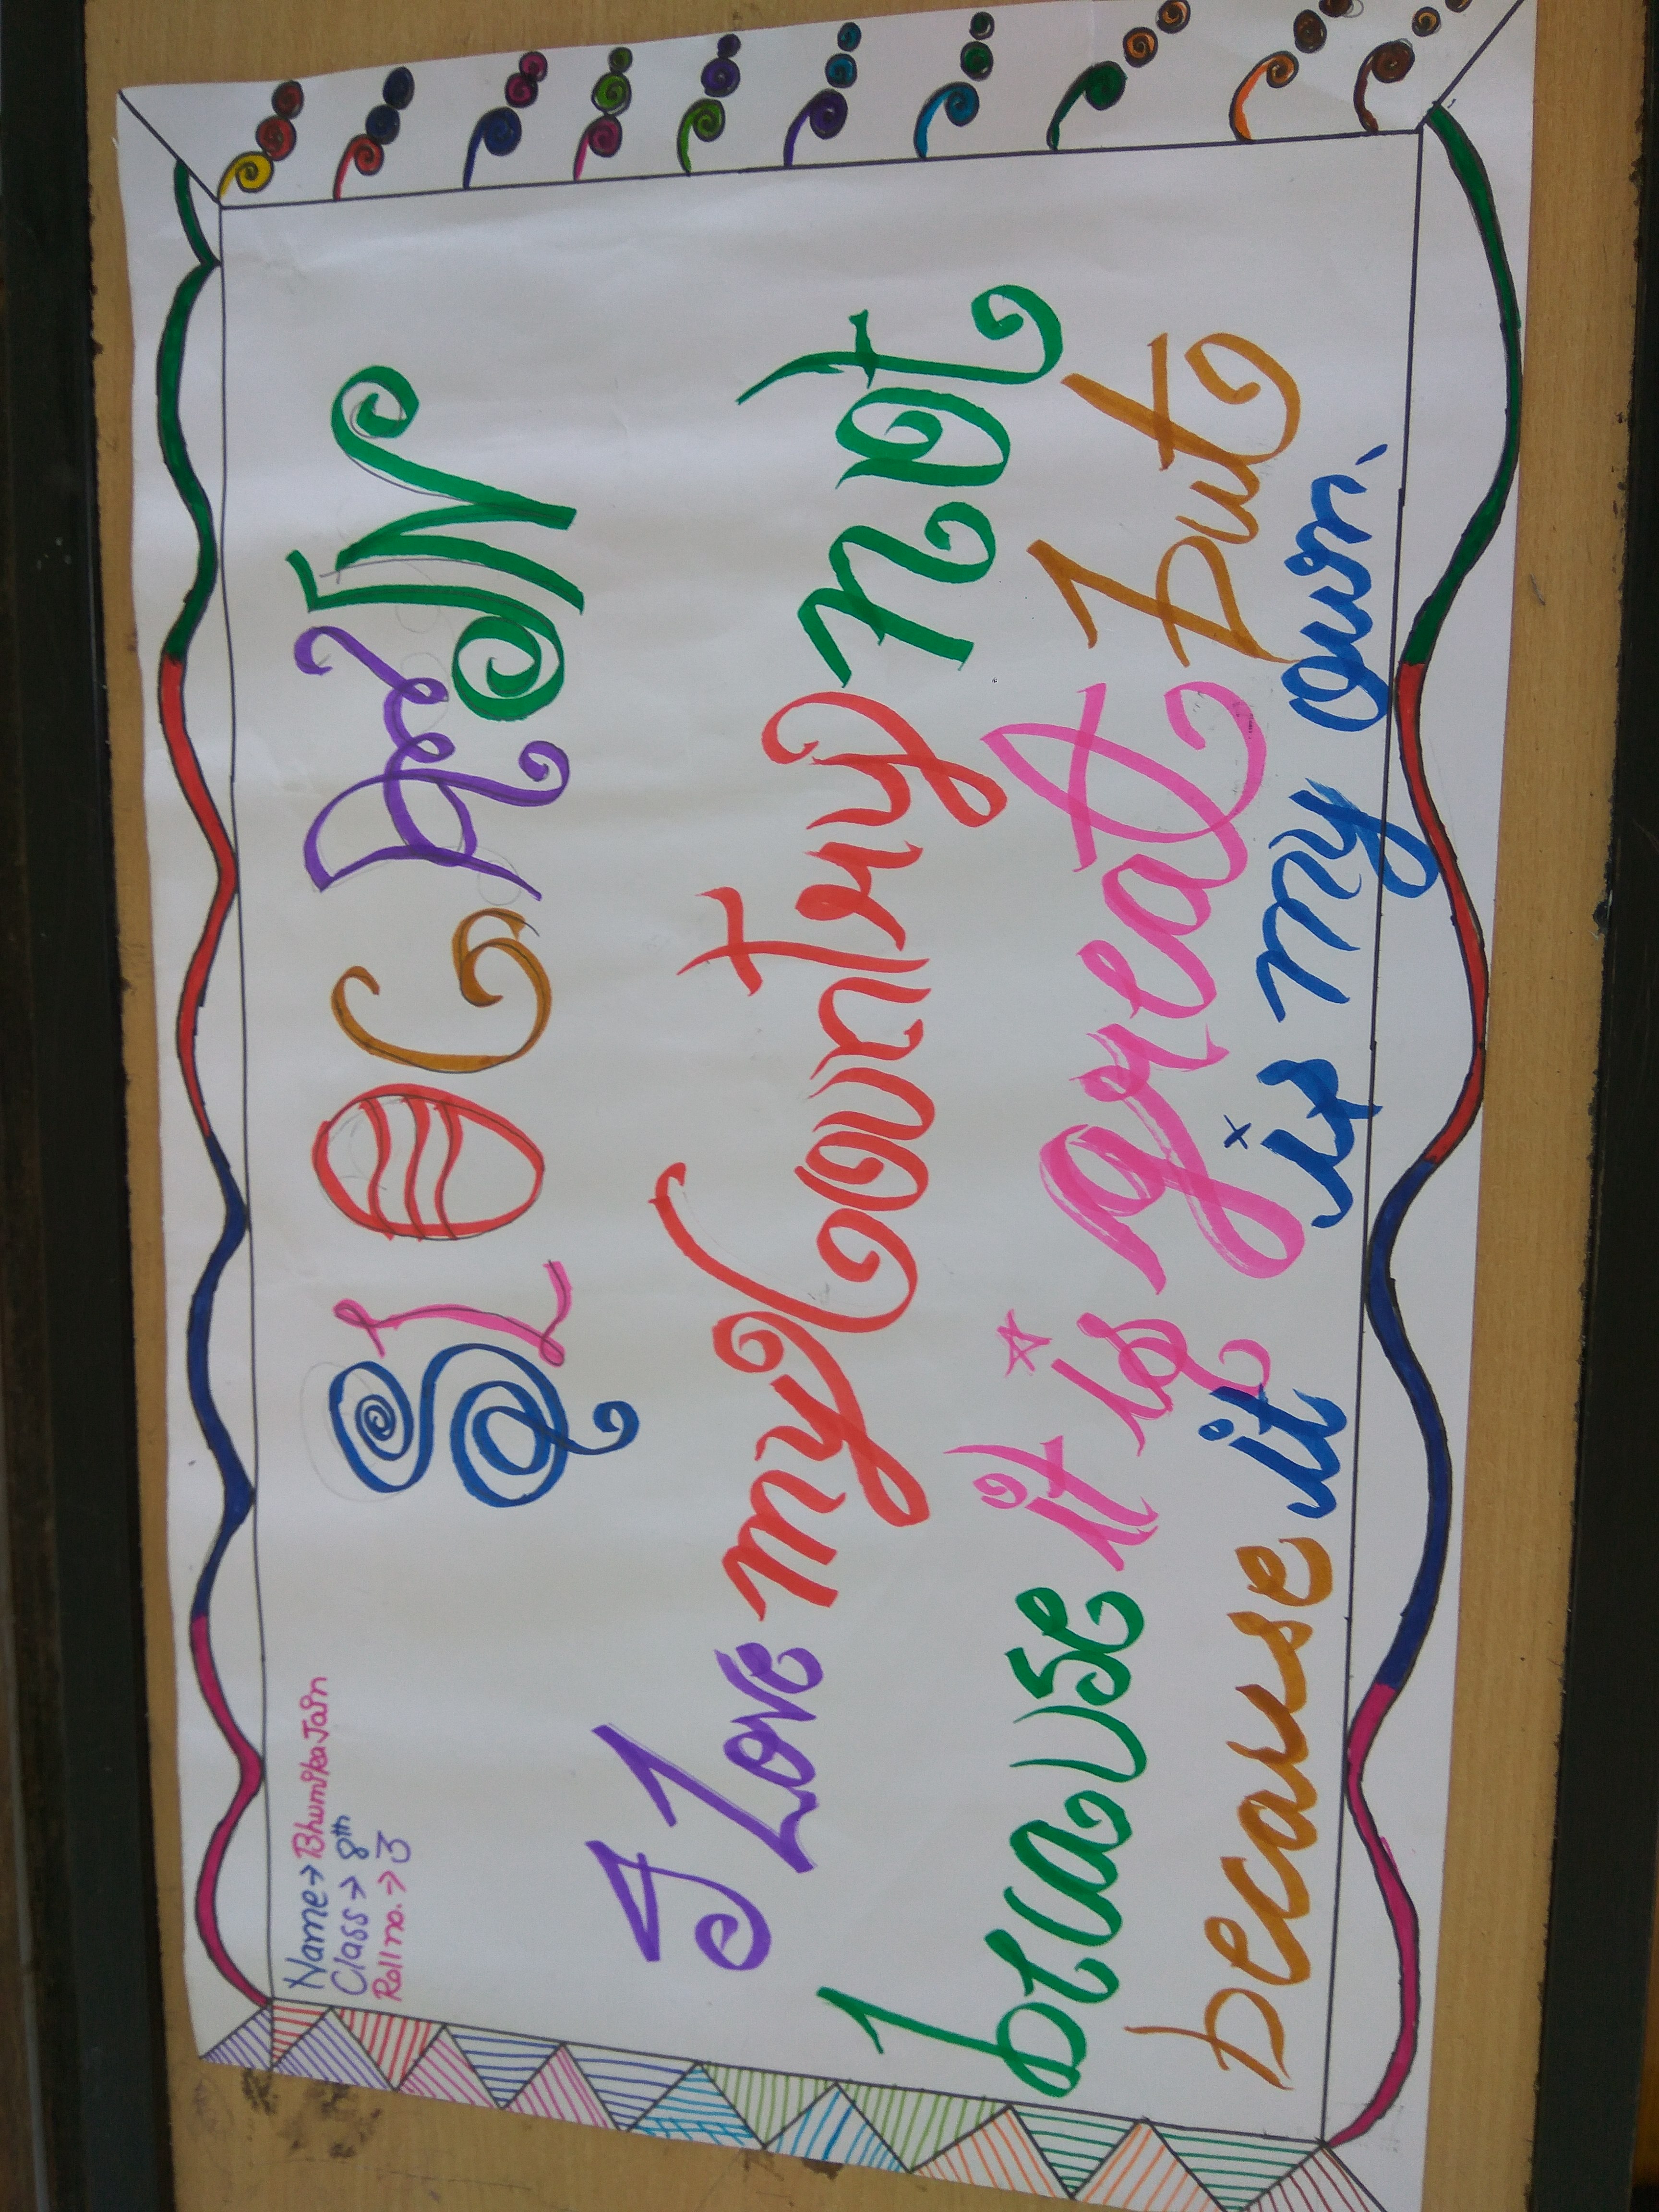 Name → Bhumika Jain
Class → 8th
Roll no. → 3
SLOGAN
I Love my Country not
because it is great but
because it is my own.